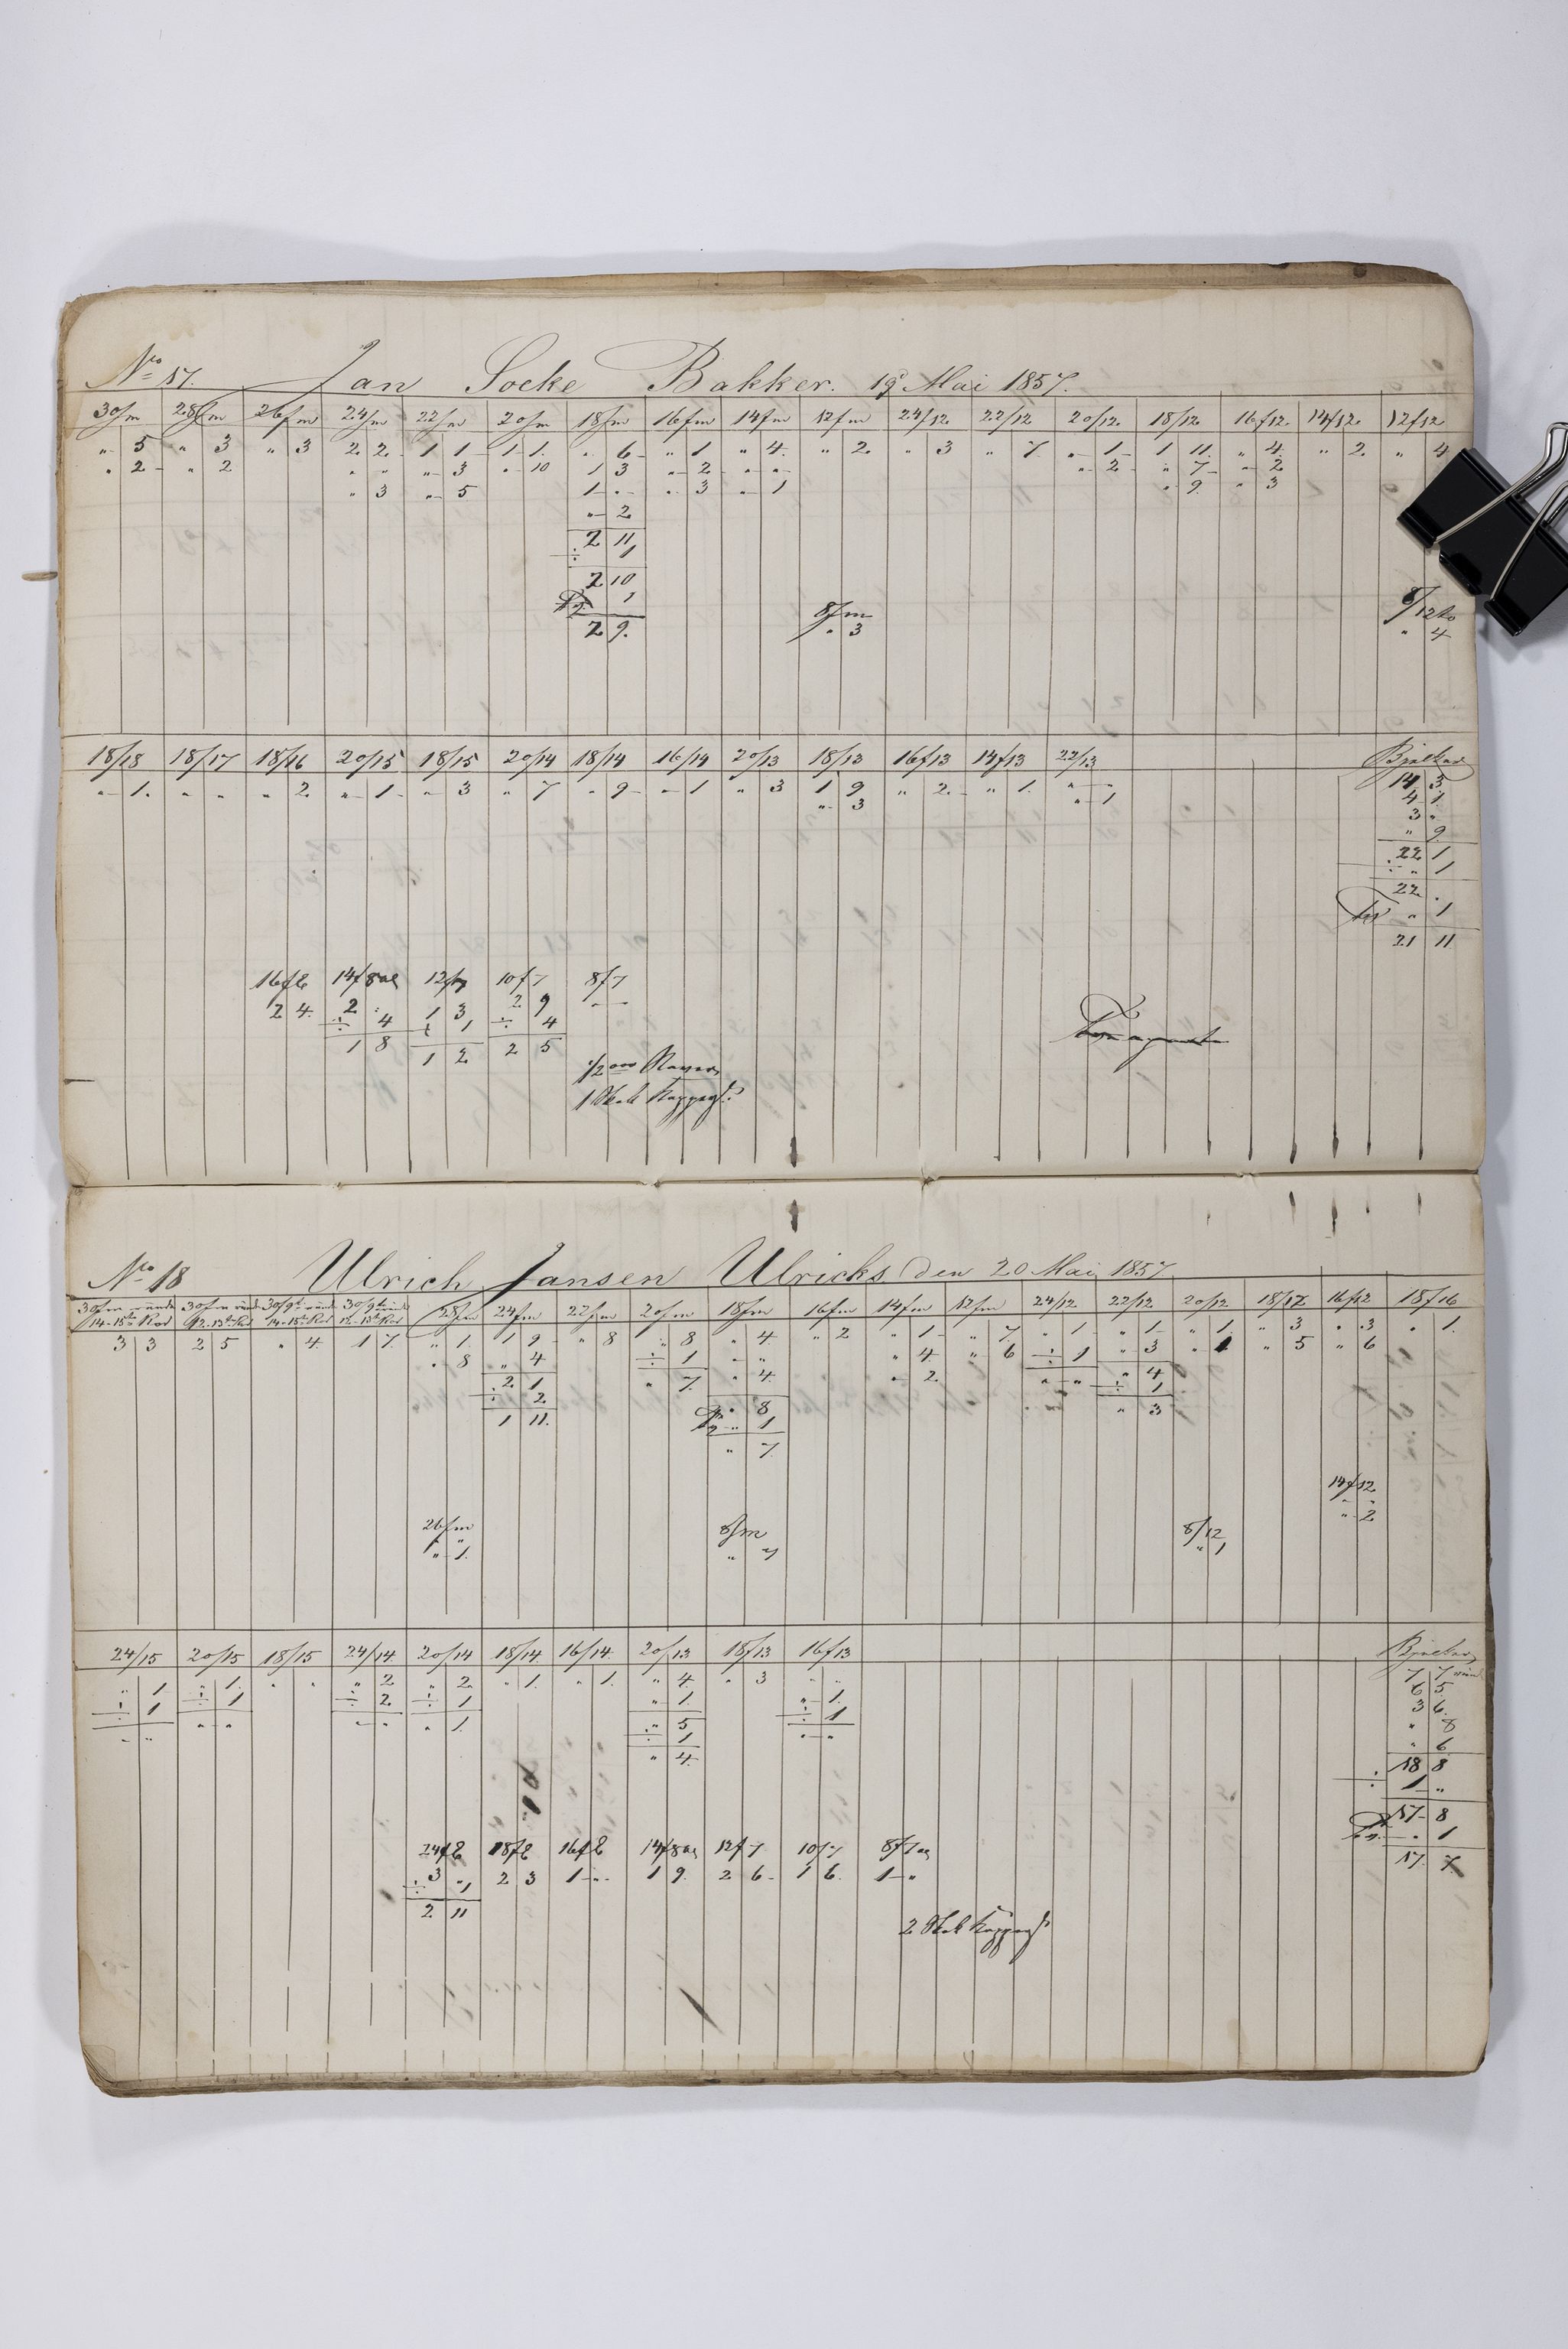 No 17. Jan Socke Bakker. 19 Mai 1857.
30/m 28/m 26/m 24/m 22/m 20/m 18/m 16/m 14/m 12/m 24/12 22/12 20/12 18/12 16/12 14/12 12/12
" 5 " 3 " 3 2 2 1 1 1 1 " 6 " 1 " 4 " 2 " 3 " 7 " 1 1 11 " 4 " 2 " 4
" 2 " 2 " " " 3 " 10 1 3 " 2 " " " 2 " 7 " 2
" 3 " 5 1 " " 3 " 1 " 9 " 3
" 2
2 11
÷ 1
2 10
1
2 9
8/m
" 3
8/12
" 4
18/18 18/17 18/16 20/15 18/15 20/14 18/14 16/14 20/13 18/13 16/13 14/13 22/13 Bjelker
" 1 " " " 2 " 1 " 3 " 7 " 9 " 1 " 3 1 9 " 2 " 1 " " 14 3
" 3 " 1 4 1
3 "
" 9
22 1
÷ " 1
22 "
" 1
21 11
16/8 14/8 12/7 10/7 8/7
2 4 2 " 1 3 2 9 " "
÷ 4 ÷ 1 ÷ 4
1 8 1 2 2 5
No 18 Ulrich Jansen Ulricks den 20 Mai 1857
28/m 24/m 22/m 20/m 18/m 16/m 14/m 12/m 24/12 22/12 20/12 18/12 16/12 18/16
3 3 2 5 " 4 1 7 " 1 1 9 " 8 " 8 " 4 " 2 " 1 " 7 " 1 " 1 " 1 " 3 " 3 " 1
" 8 " 4 ÷ 1 " " " 4 " 6 ÷ 1 " 3 " 1 " 5 " 6
2 1 " 7 " 4 " 2 " " " 4
÷ 2 " 8 ÷ 1
1 11 " 1 " 3
" 7
14/12
" "
" 2
26/m 8/m 8/12
" 1 " 1
24/15 20/15 18/15 24/14 20/14 18/14 16/14 20/13 18/13 16/13 Bjelker
" 1 " 1 " " " 2 " 2 " 1 " 1 " 4 " 3 " " 7 7
÷ 1 ÷ 1 ÷ 2 ÷ 1 " 1 " 1 6 5
" " " " " " " 1 " 5 ÷ 1 3 6
÷ 1 " " " 8
" 4 " 6
18 8
÷ 1 "
17 8
" 1
17 7
24/8 18/8 16/8 14/8 12/7 10/7 8/7
3 " 2 3 1 " 1 9 2 6 1 6 1 "
÷ 1
2 11